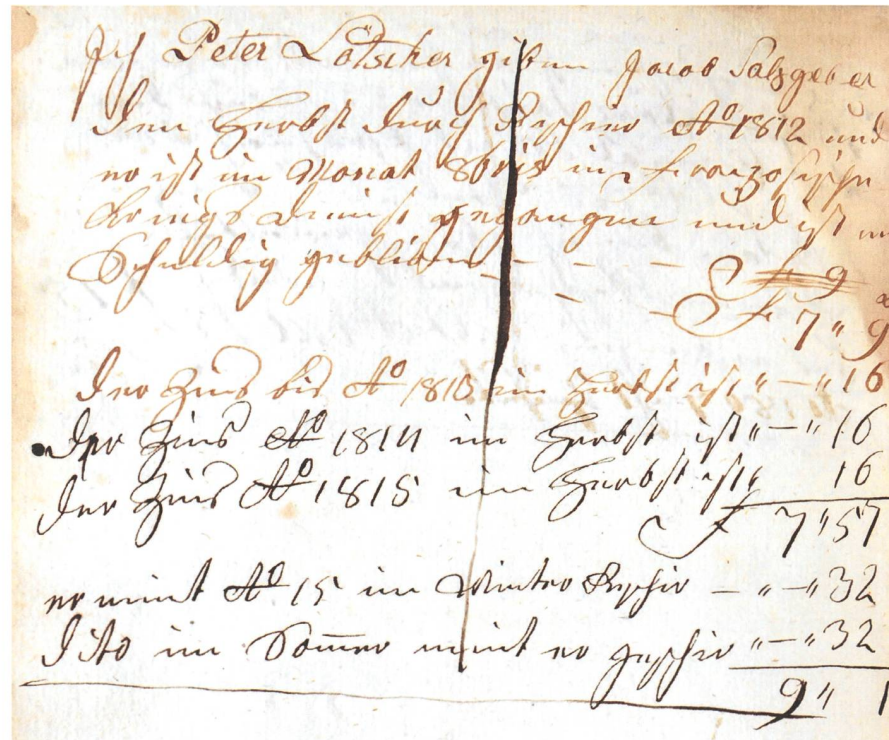 Ich Peter Lötscher giben Jacob Salzgeber
den Herbst durch Geschier Aº 1812 und
er ist im Monat 8bris in franzosische
Kriegs dienst gegangen und ist
Schuldig gebliben – – – – f 9
– f 7 " 9
der Zins bis Aº 1813 im Herbst ist " – " 16
der Zins Aº 1814 im Herbst ist " – " 16
der Zins Aº 1815 im Herbst ist " 16
f 7 " 57
er nimt Aº 15 im Winter Geschir – " – " 32
dito im Somer nimt er geschir " – " 32
9 " 1